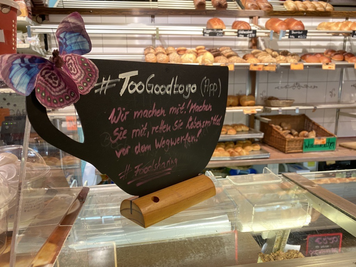 # TooGoodtogo (App)
Wir machen mit! Machen
Sie mit, retten Sie Lebensmittel
vor dem Wegwerfen!
# Foodsharing